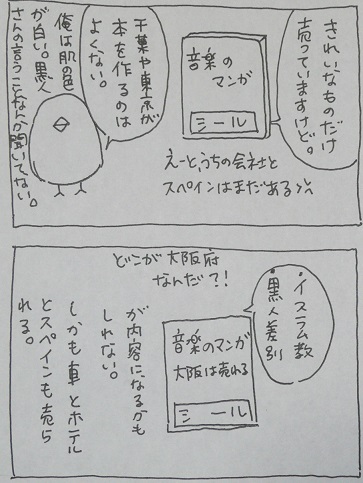 きれいなものだけ
売っていますけど。
音楽の
マンガ
シール
えーと、うちの会社と
スペインはまだある
千葉や東京が
本を作るのは
よくない。
俺は肌の色
が白い。黒人
さんの言うことなんか聞いてない。
どこが大阪府
なんだ?!
・イスラム教
・黒人差別
音楽のマンガ
大阪は売れる
シール
が内容になるかも
しれない。
しかも車とホテル
とスペインも売ら
れる。